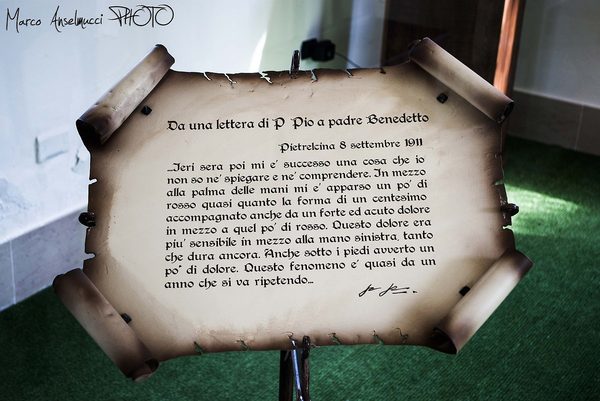 Marco Anselmucci PHOTO
Da una lettera di P Pio a padre Benedetto
Pietrelcina 8 settembre 1911
...Ieri sera poi mi e' successo una cosa che io
non so ne' spiegare e ne' comprendere. In mezzo
alla palma delle mani mi e' apparso un po' di
rosso quasi quanto la forma di un centesimo
accompagnato anche da un forte ed acuto dolore
in mezzo a quel po' di rosso. Questo dolore era
piu' sensibile in mezzo alla mano sinistra, tanto
che dura ancora. Anche sotto i piedi avverto un
po' di dolore. Questo fenomeno e' quasi da un
anno che si va ripetendo...